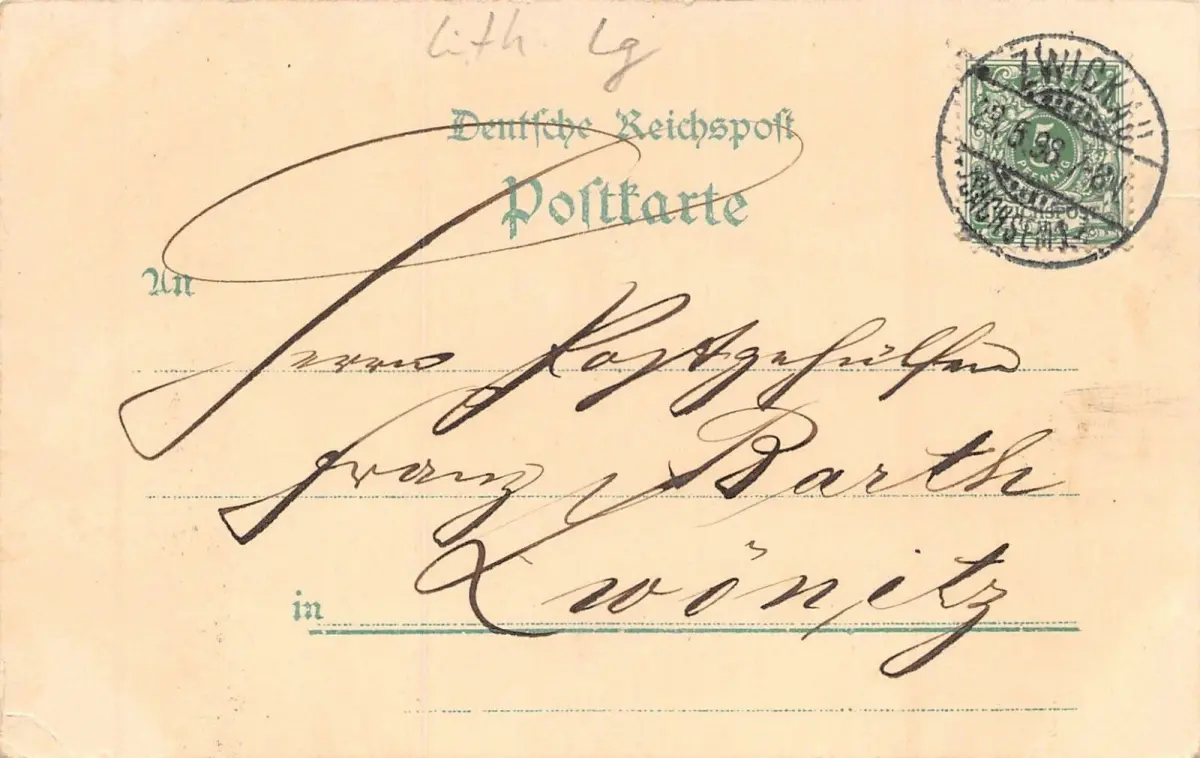 lith. Lg
Deutsche Reichspost
Postkarte
ZWICKAU
29.5.98.
5
PFENNIG
REICHSPOST
(SACHSEN) 1.
An
Herrn Postgehülfen
Franz Barth
in Zwönitz